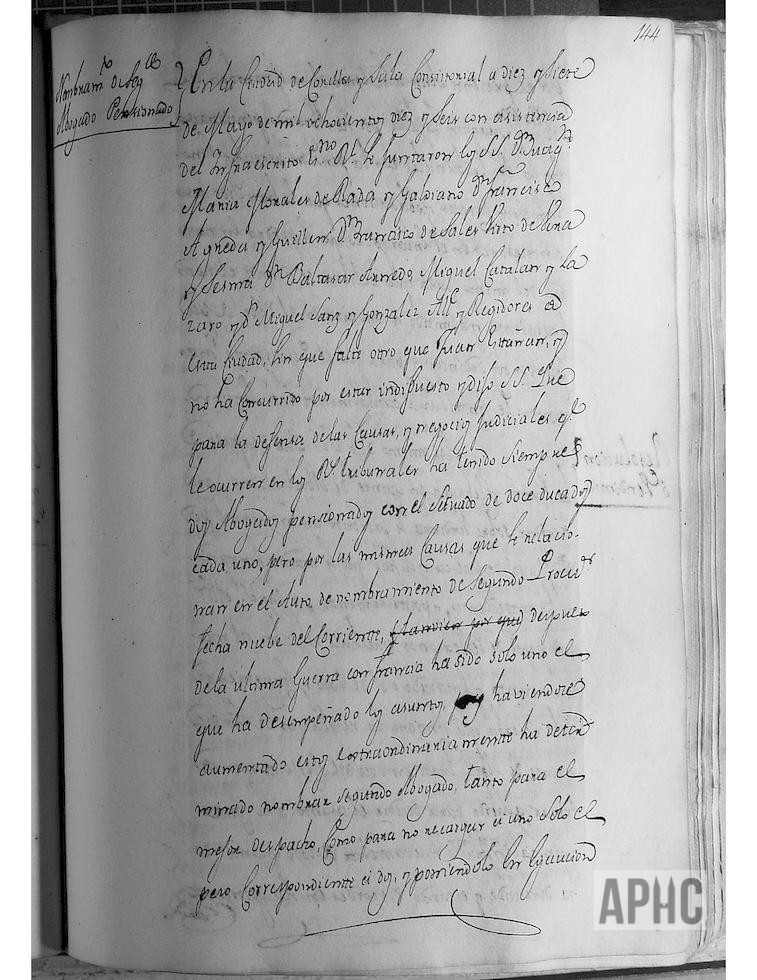 144
Nombram.to de Seg.do
Abogado Pensionado
En la Ciudad de Corella y Sala Consistorial a diez y Siete
de Mayo de mil ochocientos diez y Seis con asistencia
del Infraescrito Es.no R.l se juntaron los SS. D.n
Maria Morales de Rada y Galdiano D.n Francisco
Agreda y Guillen D.n Francisco de Sales Virto de Vera
y Sesma D.n Baltasar Miguel Catalan y La
zaro y D.n Miguel Sanz y Gonzalez Alc.e y Regidores de
esta Ciudad, sin que falte otro que Juan
no ha Concurrido por estar indispuesto y dijo SS. Que
para la defensa de las Causas, y negocios Judiciales q.e
le ocurren en los R.s tribunales ha tenido Siempre
dos Abogados pensionados con el Situado de doce ducados
cada uno, pero por las mismas Causas que se relacio-
nan en el Auto de nombramiento de Segundo Procu.or
fecha nuebe del Corriente, despues
de la ultima Guerra con Francia ha sido solo uno el
que ha desempeñado los asuntos, y haviendose
aumentado estos extraordinariamente ha deter
minado nombrar segundo Abogado, tanto para el
mejor despacho, Como para no recargar a uno Solo el
peso Correspondiente a dos, y poniendolo en egecucion
APHC